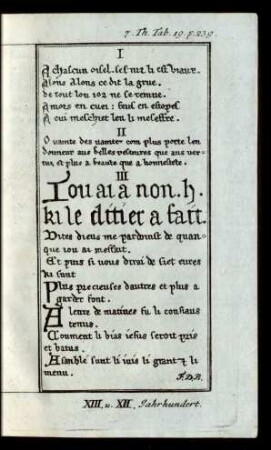 7. Th. Tab. 19. p. 239.
I
A chascun oisel ses niz li est biaux.
Alons Alons ce dit la grue.
de tout lou ne se remue.
Amors en cuer : feus en estopes
A cui meschiet len li mesoffre.
II
O vainte des vaintez com plus porte len
donment aux belles vestures que aux ver
tuz et plus a beaute que a honnestete.
III
Iou ai a non. h.
ki le ditier a fait.
Vites dieus me pardoinst de quan-
que iou ai meffait.
Et puis si vous dirai de siet eures
ki sunt
Plus precieuses dautres et plus a
garder font.
A leure de matines fu li confiaus
tenus.
Coument li bias iesus seroit pris
et batus.
Asemble sunt li iuis li grant et li
menu.
XIII. u. XII. Jahrhundert.